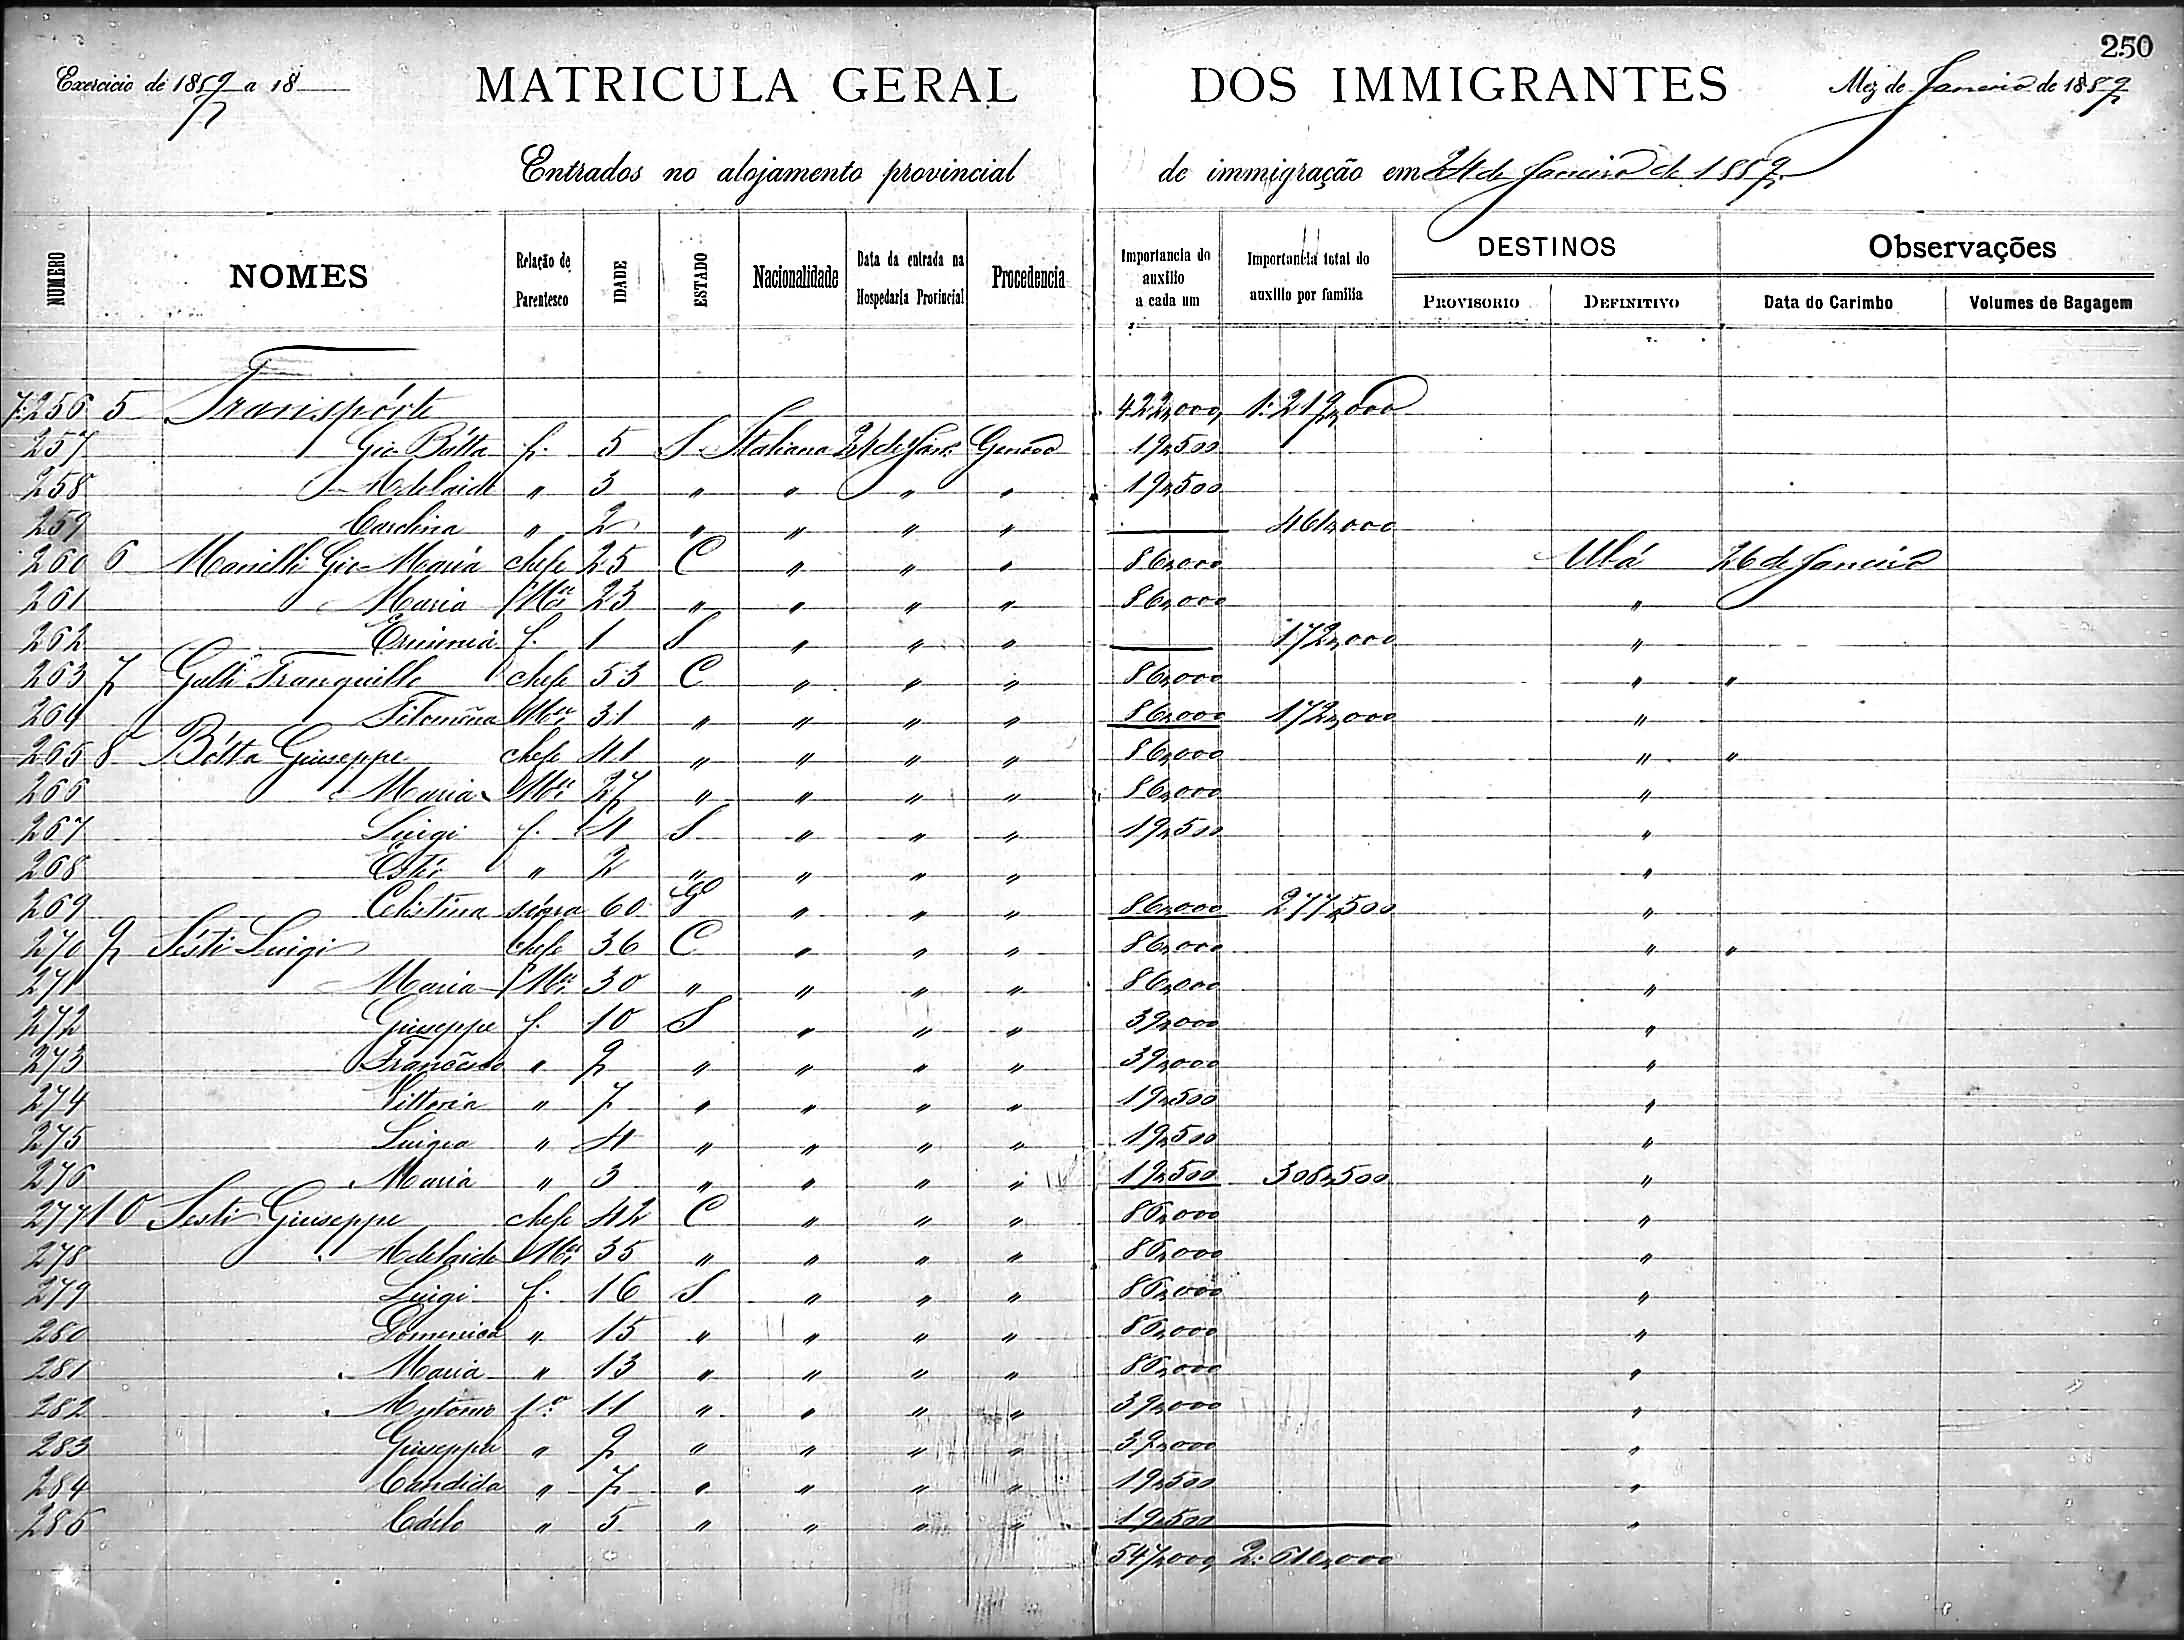 250
Exercicio de 1889 a 18
MATRICULA GERAL DOS IMMIGRANTES
Mez de Janeiro de 1889
Entrados no alojamento provincial de immigração em 24 de Janeiro de 1889
NUMERO NOMES Relação de Parentesco IDADE ESTADO Nacionalidade Data da entrada na Hospedaria Provincial Procedencia Importancia do auxilio a cada um Importancia total do auxilio por familia DESTINOS PROVISORIO DEFINITIVO Observações Data do Carimbo Volumes de Bagagem
7:256 5 Transpórte 422,000 1:219,000
257 Gio Bátta f. 5 S Italiana 24 de Janº Genova 19,500
258 Adelaide " 3 " " " " 19,500
259 Carolina " 2 " " " " — 461,000
260 6 Manilli Gio Maria chefe 25 C " " " 86,000 Ubá 26 de Janeiro
261 Maria Mer 23 " " " " 86,000 "
262 Erminia f. 1 S " " " — 172,000 "
263 7 Galli Tranquillo chefe 53 C " " " 86,000 " "
264 Filomena Mer 31 " " " " 86,000 172,000 "
265 8 Bótta Giuseppe chefe 41 " " " " 86,000 " "
266 Maria Mer 27 " " " " 86,000 "
267 Luigi f. 4 S " " " 19,500 "
268 Estér " 2 " " " " "
269 Celistina sógra 60 " " " 86,000 277,500 "
270 9 Sésti Luigi chefe 36 C " " " 86,000 " "
271 Maria Mer 30 " " " " 86,000 "
272 Giuseppe f. 10 S " " " 39,000 "
273 Francisco " 9 " " " " 39,000 "
274 Vittoria " 7 " " " " 19,500 "
275 Luigia " 4 " " " " 19,500 "
276 Maria " 3 " " " " 19,500 308,500 "
277 10 Sesti Giuseppe chefe 42 C " " " 86,000 "
278 Adelaide Mer 35 " " " " 86,000 "
279 Luigi f. 16 S " " " 86,000 "
280 Domenica " 15 " " " " 86,000 "
281 Maria " 13 " " " " 86,000 "
282 Antonio fº 11 " " " " 39,000 "
283 Giuseppa " 9 " " " " 39,000 "
284 Candida " 7 " " " " 19,500 "
285 Cárlo " 5 " " " " 19,500 "
547,000 2:610,000